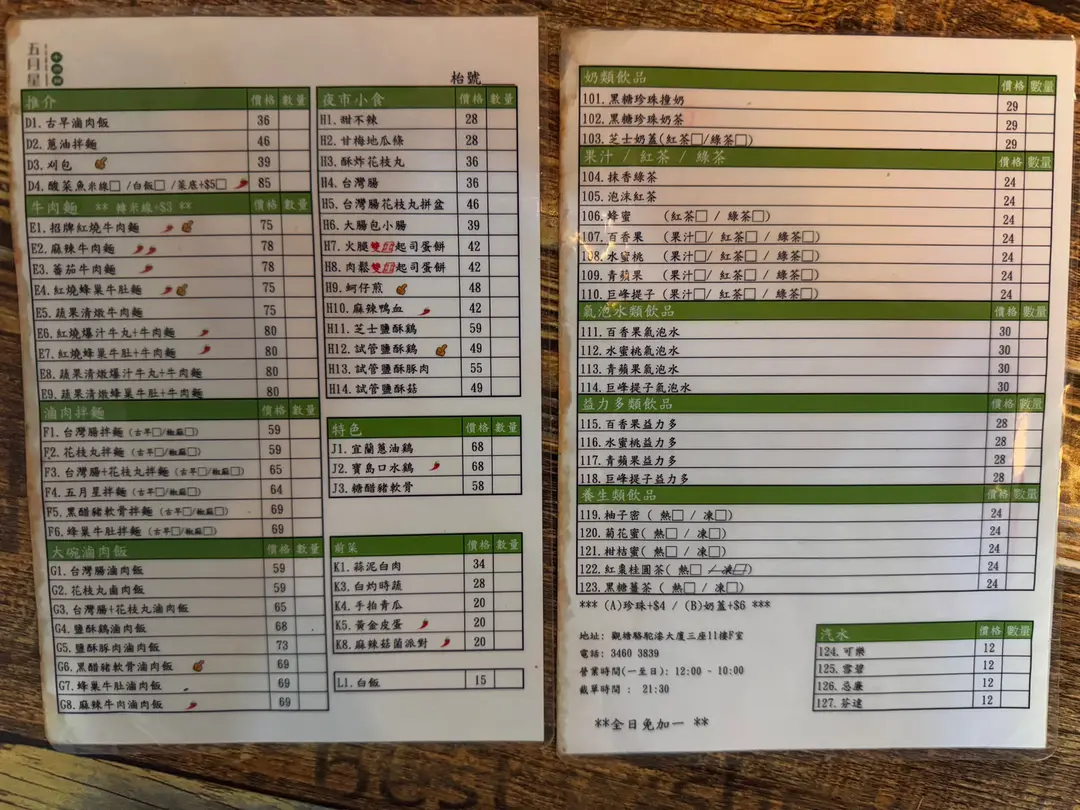 五月星
枱號
推介 價格 數量
D1. 古早滷肉飯 36
D2. 蔥油拌麵 46
D3. 刈包 39
D4. 酸菜魚米線□ /白飯□ /菜底+$5□ 85
牛肉麵 ** 轉米線+$3 ** 價格 數量
E1. 招牌紅燒牛肉麵 75
E2. 麻辣牛肉麵 78
E3. 蕃茄牛肉麵 78
E4. 紅燒蜂巢牛肚麵 75
E5. 蔬果清燉牛肉麵 75
E6. 紅燒爆汁牛丸+牛肉麵 80
E7. 紅燒蜂巢牛肚+牛肉麵 80
E8. 蔬果清燉爆汁牛丸+牛肉麵 80
E9. 蔬果清燉蜂巢牛肚+牛肉麵 80
滷肉拌麵 價格 數量
F1. 台灣腸拌麵 (古早□/椒麻□) 59
F2. 花枝丸拌麵 (古早□/椒麻□) 59
F3. 台灣腸+花枝丸拌麵 (古早□/椒麻□) 65
F4. 五月星拌麵 (古早□/椒麻□) 64
F5. 黑醋豬軟骨拌麵 (古早□/椒麻□) 69
F6. 蜂巢牛肚拌麵 (古早□/椒麻□) 69
大碗滷肉飯 價格 數量
G1. 台灣腸滷肉飯 59
G2. 花枝丸滷肉飯 59
G3. 台灣腸+花枝丸滷肉飯 65
G4. 鹽酥鷄滷肉飯 68
G5. 鹽酥豚肉滷肉飯 73
G6. 黑醋豬軟骨滷肉飯 69
G7. 蜂巢牛肚滷肉飯 69
G8. 麻辣牛肉滷肉飯 69
夜市小食 價格 數量
H1. 甜不辣 28
H2. 甘梅地瓜條 28
H3. 酥炸花枝丸 36
H4. 台灣腸 36
H5. 台灣腸花枝丸拼盆 46
H6. 大腸包小腸 39
H7. 火腿雙起司蛋餅 42
H8. 肉鬆雙起司蛋餅 42
H9. 蚵仔煎 48
H10. 麻辣鴨血 42
H11. 芝士鹽酥鷄 59
H12. 試管鹽酥鷄 49
H13. 試管鹽酥豚肉 55
H14. 試管鹽酥菇 49
特色 價格 數量
J1. 宜蘭蔥油鷄 68
J2. 寶島口水鷄 68
J3. 糖醋豬軟骨 58
前菜 價格 數量
K1. 蒜泥白肉 34
K3. 白灼時蔬 28
K4. 手拍青瓜 20
K5. 黃金皮蛋 20
K8. 麻辣菇菌派對 20
L1. 白飯 15
奶類飲品 價格 數量
101. 黑糖珍珠撞奶 29
102. 黑糖珍珠奶茶 29
103. 芝士奶蓋(紅茶□/綠茶□) 29
果汁 / 紅茶 / 綠茶 價格 數量
104. 抹香綠茶 24
105. 泡沫紅茶 24
106. 蜂蜜 (紅茶□ / 綠茶□) 24
107. 百香果 (果汁□/ 紅茶□ / 綠茶□) 24
108. 水蜜桃 (果汁□/ 紅茶□ / 綠茶□) 24
109. 青蘋果 (果汁□/ 紅茶□ / 綠茶□) 24
110. 巨峰提子 (果汁□/ 紅茶□ / 綠茶□) 24
氣泡水類飲品 價格 數量
111. 百香果氣泡水 30
112. 水蜜桃氣泡水 30
113. 青蘋果氣泡水 30
114. 巨峰提子氣泡水 30
益力多類飲品 價格 數量
115. 百香果益力多 28
116. 水蜜桃益力多 28
117. 青蘋果益力多 28
118. 巨峰提子益力多 28
養生類飲品 價格 數量
119. 柚子蜜 ( 熱□ / 凍□) 24
120. 菊花蜜 ( 熱□ / 凍□) 24
121. 柑桔蜜 ( 熱□ / 凍□) 24
122. 紅棗桂圓茶( 熱□ / 凍□) 24
123. 黑糖薑茶 ( 熱□ / 凍□) 24
*** (A)珍珠+$4 / (B)奶蓋+$6 ***
地址: 觀塘駱駝漆大廈三座11樓F室
電話: 3460 3839
營業時間(一至日): 12:00 - 10:00
截單時間 : 21:30
**全日免加一 **
汽水 價格 數量
124. 可樂 12
125. 雪碧 12
126. 忌廉 12
127. 芬達 12